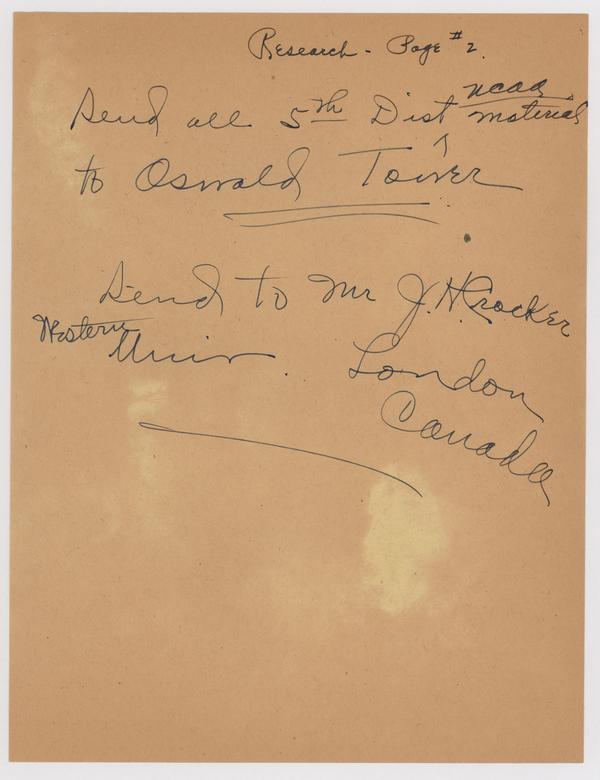 Research - Page #2.
Send all 5th Dist NCAA material
to Oswald Tower
Send to Mr J.H. Crocker
Western Univ. London
Canada